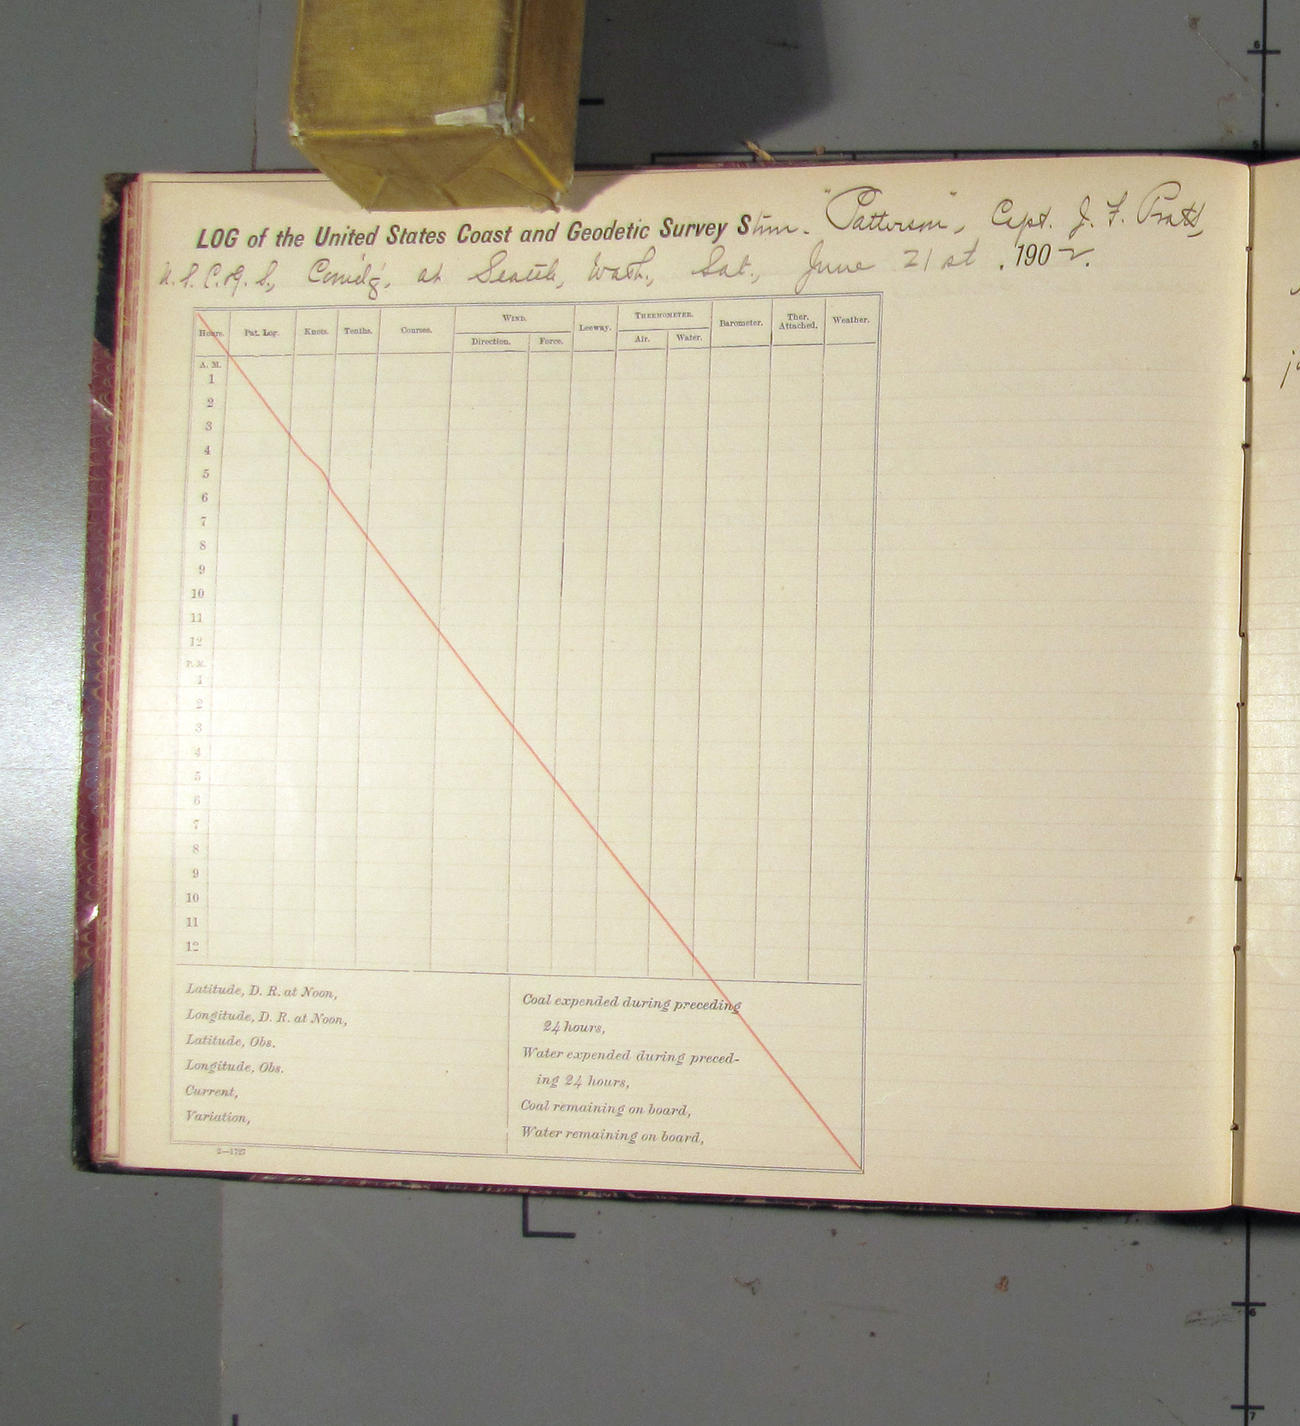 LOG of the United States Coast and Geodetic Survey Stmr. "Patterson", Capt. J. F. Pratt,
U. S. C. & G. S., Comd'g, at Seattle, Wash., Sat., June 21st, 1902.
Hours. Pat. Log. Knots. Tenths. Courses. WIND. Leeway. THERMOMETER. Barometer. Ther. Attached. Weather.
Direction. Force. Air. Water.
A. M.
1
2
3
4
5
6
7
8
9
10
11
12
P. M.
1
2
3
4
5
6
7
8
9
10
11
12
Latitude, D. R. at Noon,
Longitude, D. R. at Noon,
Latitude, Obs.
Longitude, Obs.
Current,
Variation,
Coal expended during preceding
24 hours,
Water expended during preced-
ing 24 hours,
Coal remaining on board,
Water remaining on board,
2—1727
5
6
6
7